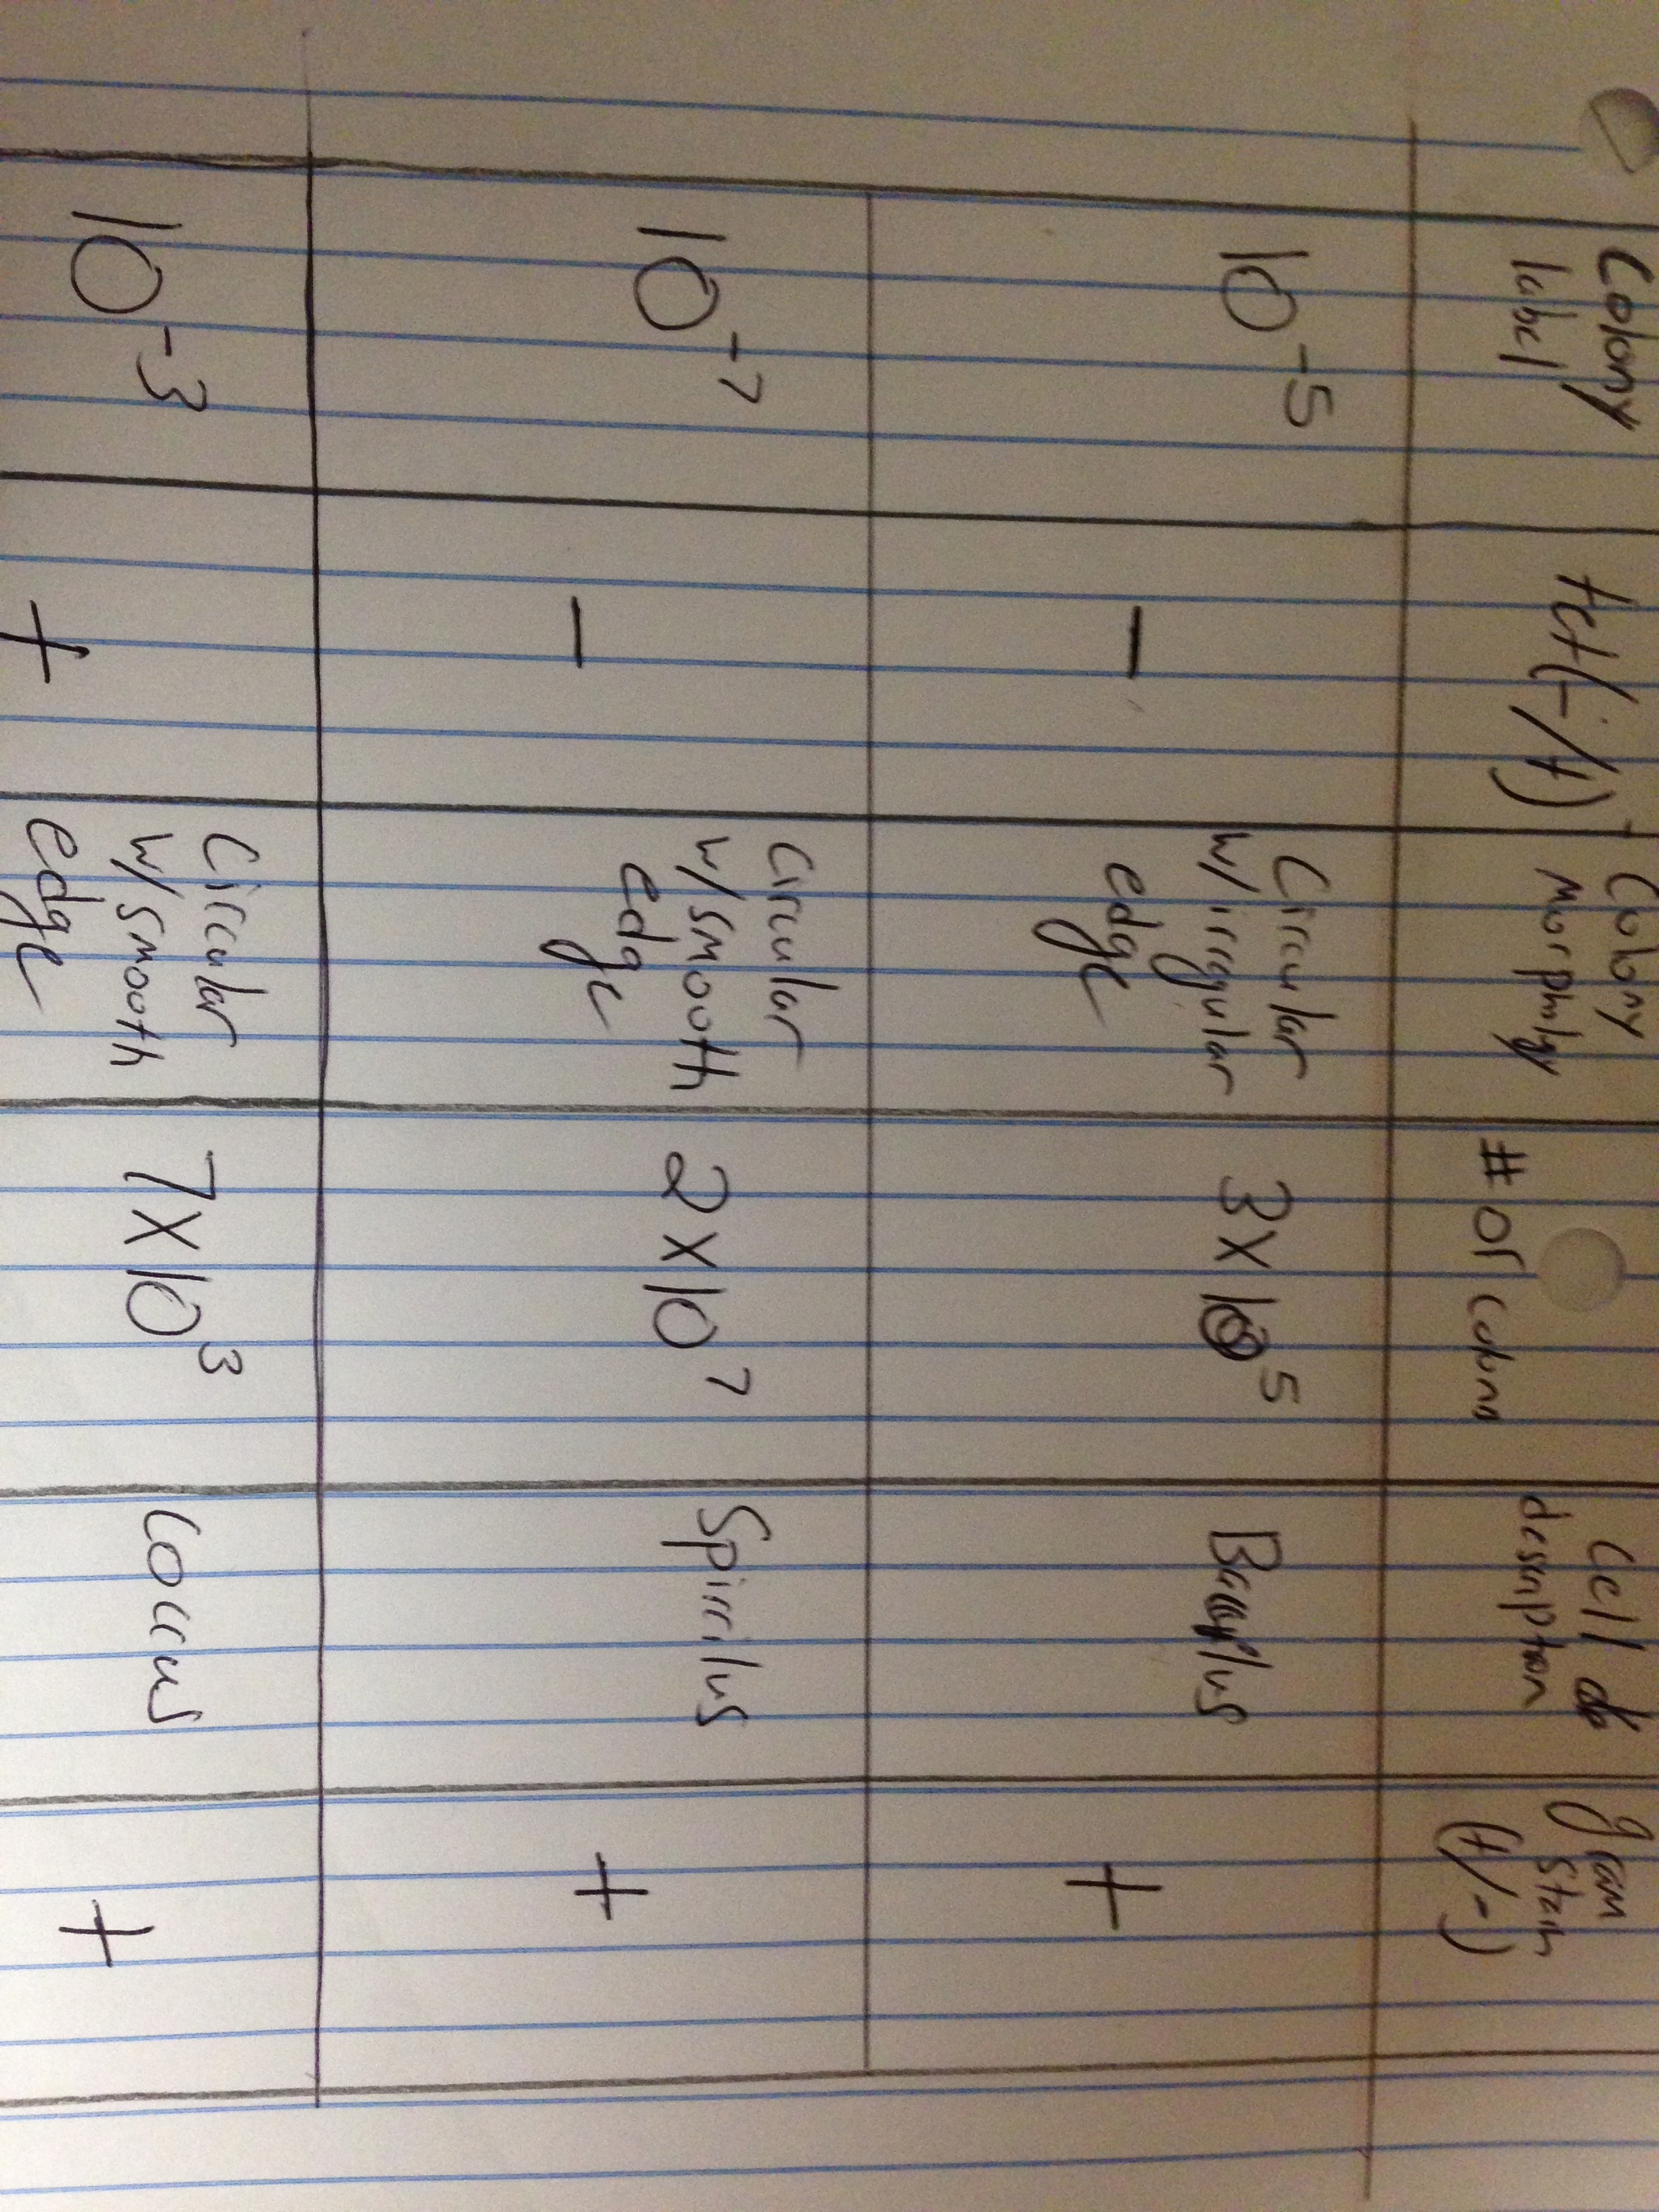 Colony label | tet (-/+) | Colony Morphology | # of colonies | Cell description | gram stain (+/-)
10⁻⁵ | - | Circular w/ irregular edge | 3 X 10⁵ | Bacillus | +
10⁻⁷ | - | Circular w/ smooth edge | 2 X 10⁷ | Spirilus | +
10⁻³ | + | Circular w/ smooth edge | 7 X 10³ | coccus | +